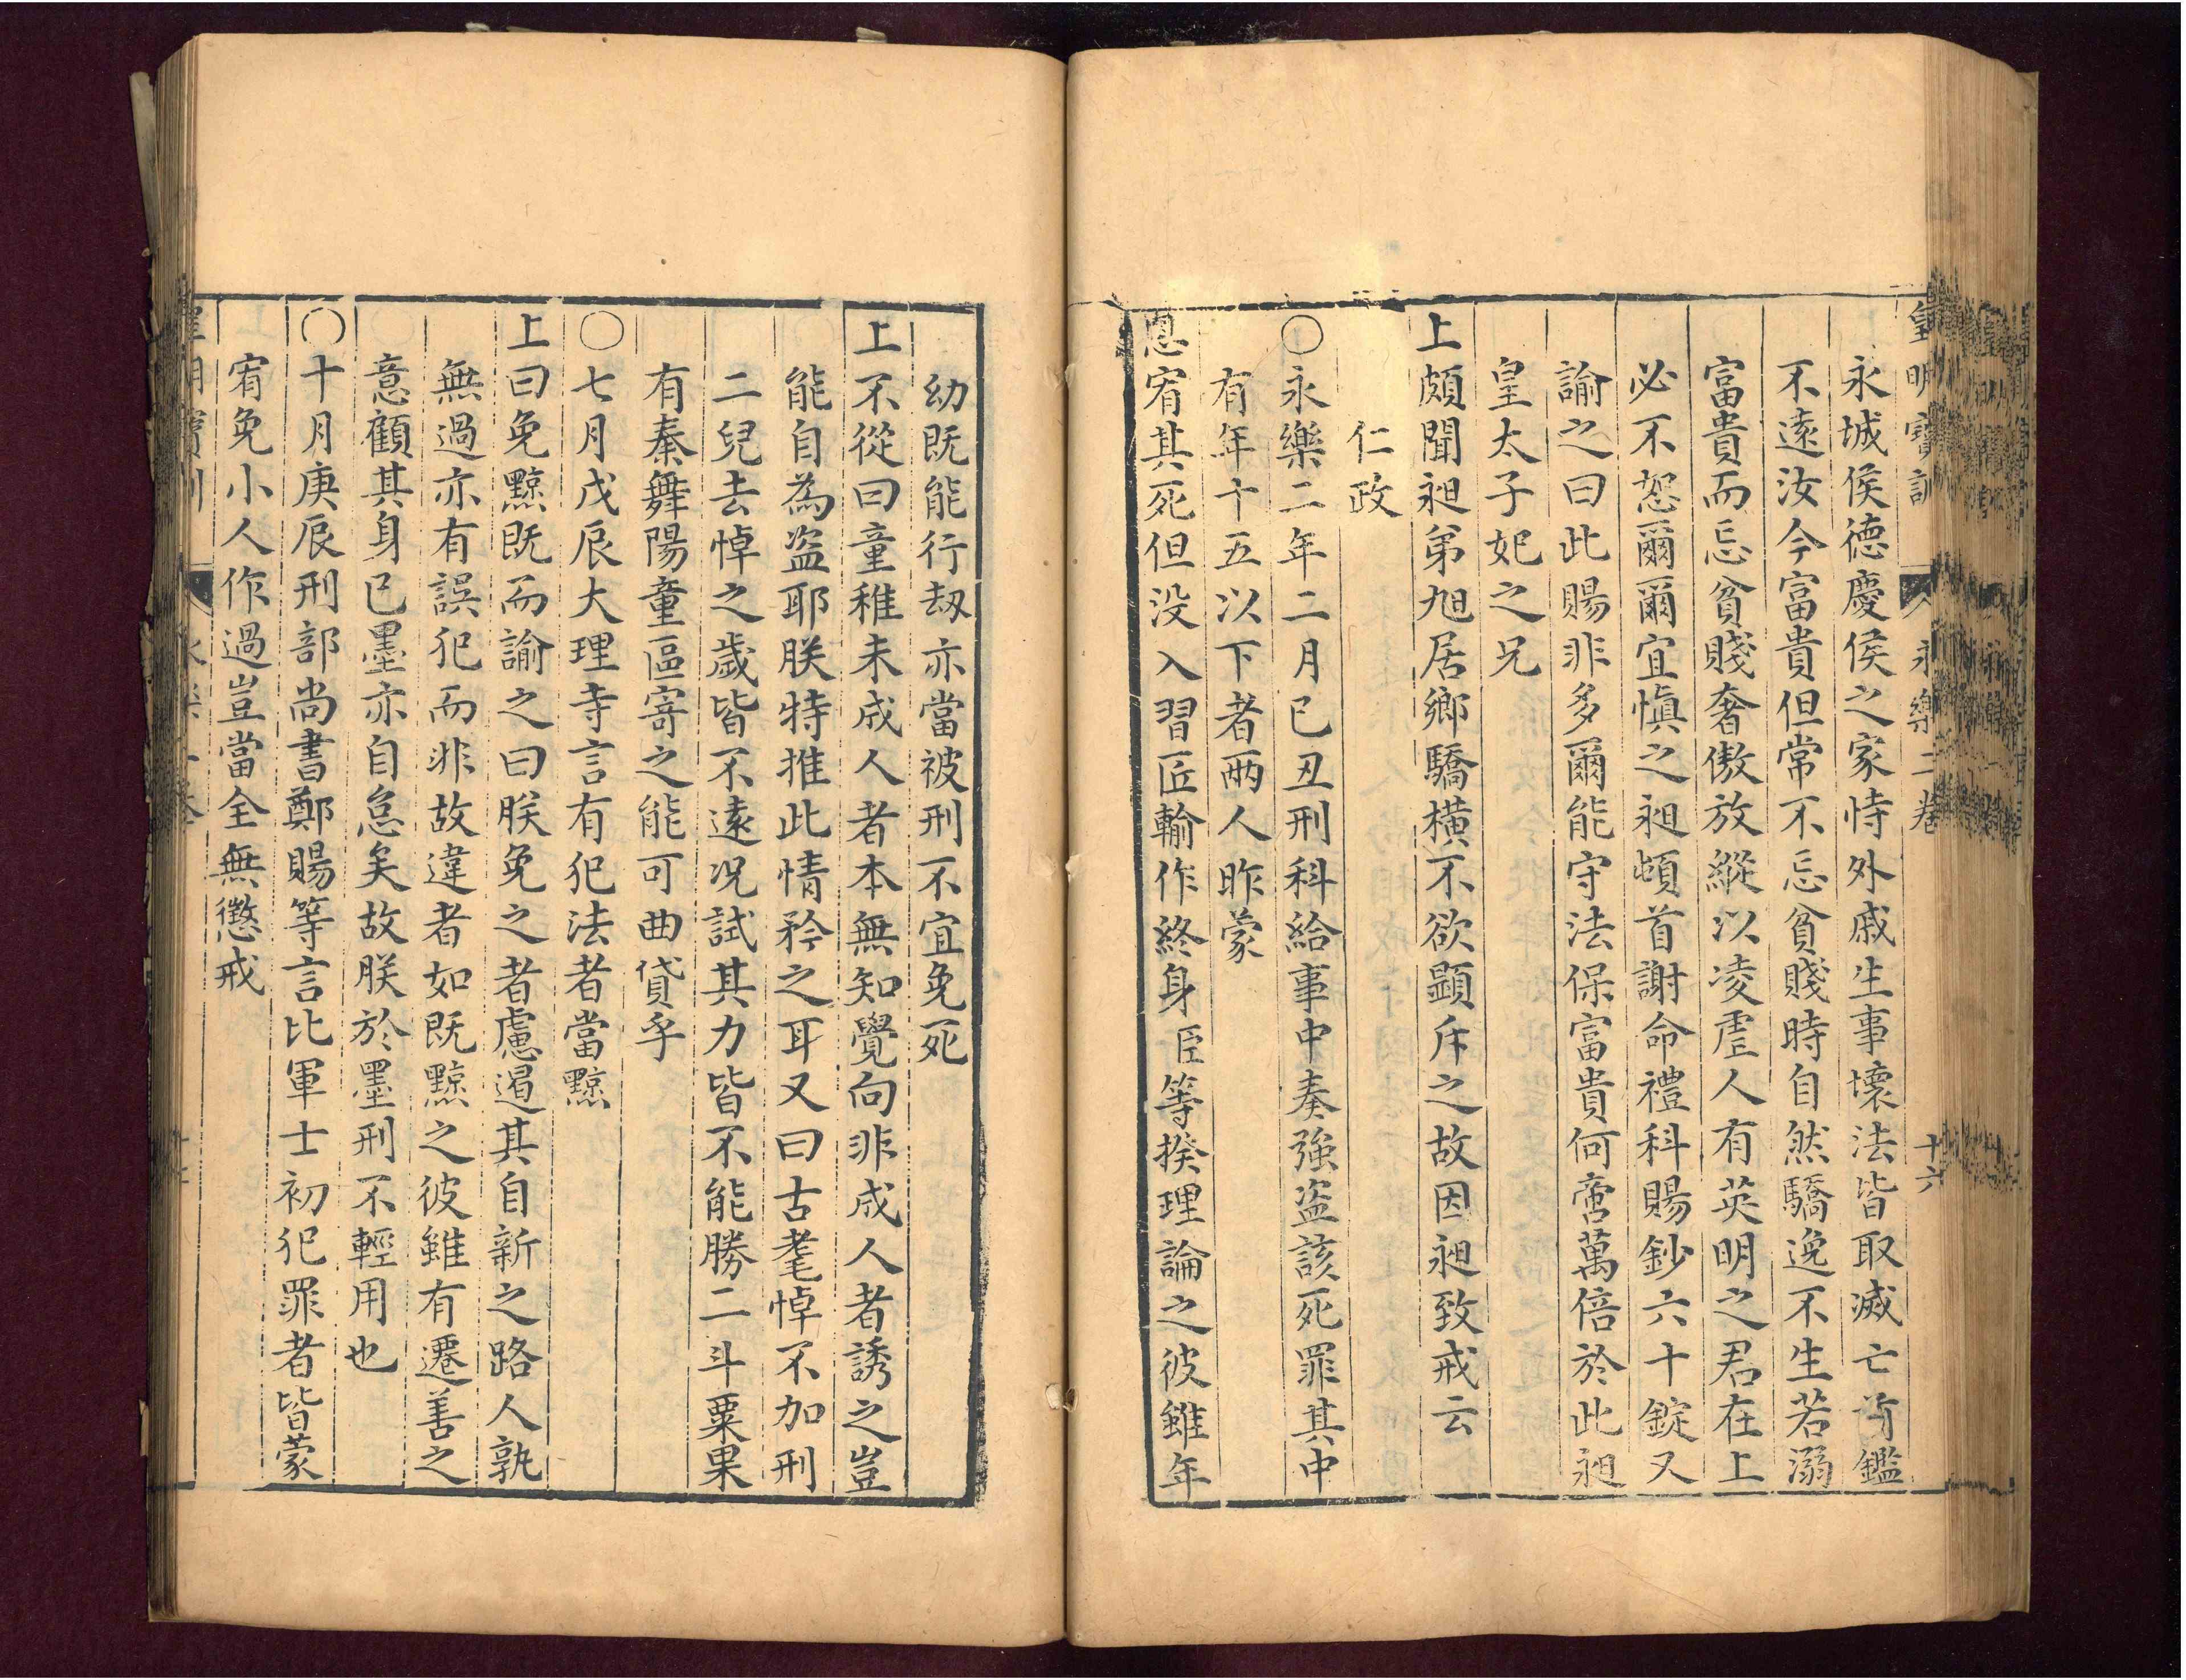 皇明寶訓　永樂二卷　十六
永城侯德慶侯之家恃外戚生事壞法皆取滅亡 鑑
不遠汝今富貴但常不忘貧賤時自然驕逸不生若溺
富貴而忘貧賤奢傲放縱以凌虐人有英明之君在上
必不恕爾爾宜慎之昶頓首謝命禮科賜鈔六十錠又
諭之曰此賜非多爾能守法保富貴何啻萬倍於此昶
皇太子妃之兄
上頗聞昶弟旭居鄉驕橫不欲顯斥之故因昶致戒云
仁政
○永樂二年二月己丑刑科給事中奏強盜該死罪其中
有年十五以下者兩人昨蒙
恩宥其死但没入習匠輸作終身臣等揆理論之彼雖年
幼既能行刼亦當被刑不宜免死
上不從曰童稚未成人者本無知覺向非成人者誘之豈
能自為盜耶朕特推此情矜之耳又曰古耄悼不加刑
二兒去悼之歲皆不遠况試其力皆不能勝二斗粟果
有秦舞陽童區寄之能可曲貸乎
○七月戊辰大理寺言有犯法者當黥
上曰免黥既而諭之曰朕免之者慮遏其自新之路人孰
無過亦有誤犯而非故違者如既黥之彼雖有遷善之
意顧其身已墨亦自怠矣故朕於墨刑不輕用也
○十月庚辰刑部尚書鄭賜等言比軍士初犯罪者皆蒙
宥免小人作過豈當全無懲戒